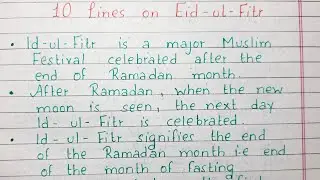 10 Lines on Eid-ul-Fitr
• Id-ul-Fitr is a major Muslim
Festival celebrated after the
end of Ramadan month.
• After Ramadan, when the new
moon is seen, the next day
Id-ul-Fitr is celebrated.
• Id-ul-Fitr signifies the end
of the Ramadan month i.e end
of the month of fasting